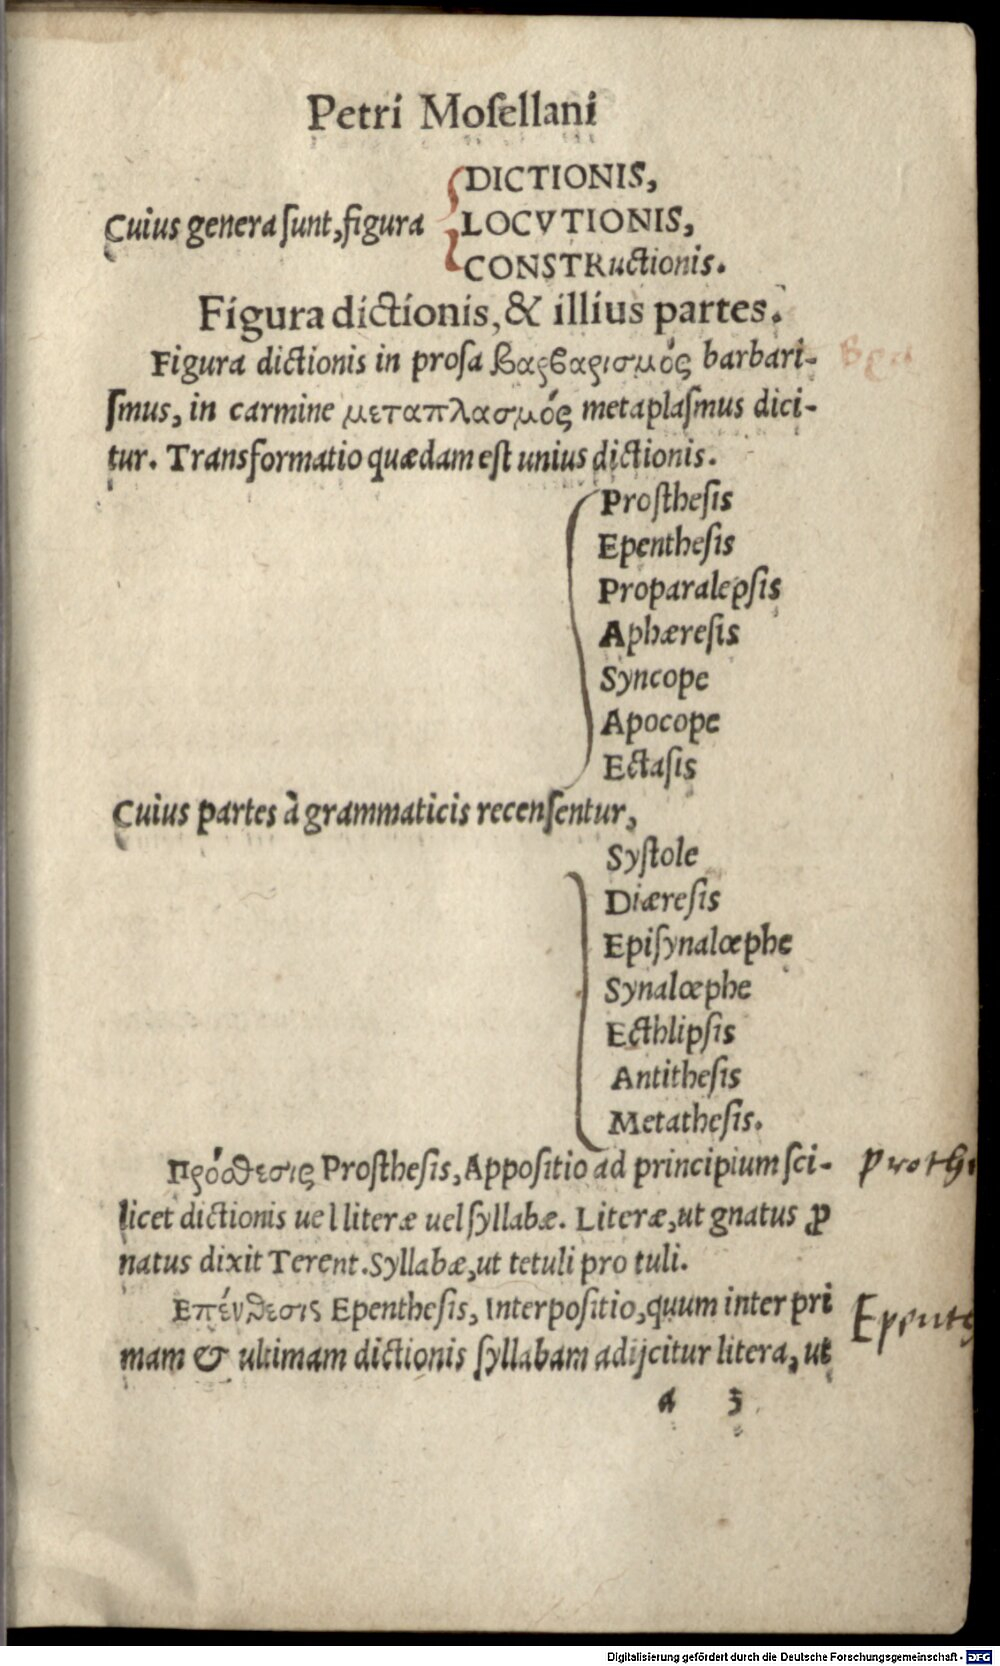 Petri Moſellani
DICTIONIS,
Cuius genera ſunt, figura
LOCVTIONIS,
CONSTRuctionis.
Figura dictionis, & illius partes.
Figura dictionis in proſa βαρβαρισμός barbari-
ſmus, in carmine μεταπλασμός metaplaſmus dici-
tur. Transformatio quædam eſt unius dictionis.
Proſtheſis
Epentheſis
Proparalepſis
Aphæreſis
Syncope
Apocope
Ectaſis
Cuius partes à grammaticis recenſentur,
Syſtole
Diæreſis
Epiſynalœphe
Synalœphe
Ecthlipſis
Antitheſis
Metatheſis.
Πρόσθεσις Proſtheſis, Appoſitio ad principium ſci-
licet dictionis uel literæ uel ſyllabæ. Literæ, ut gnatus ꝓ
natus dixit Terent. Syllabæ, ut tetuli pro tuli.
Επένθεσις Epentheſis, Interpoſitio, quum inter pri
mam & ultimam dictionis ſyllabam adijcitur litera, ut
a 3
Digitalisierung gefördert durch die Deutsche Forschungsgemeinschaft - DFG